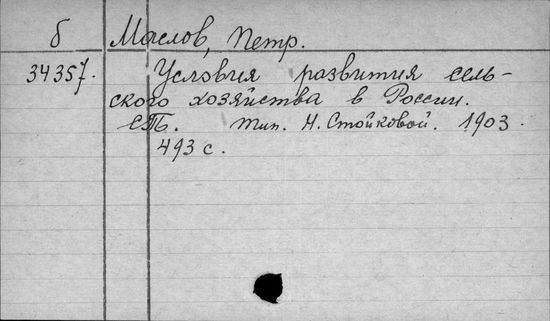 б Маслов, Петр.
34357. Условия развития сель-
ского хозяйства в России.
СПБ. Тип. Н. Стойковой. 1903.
493 с.